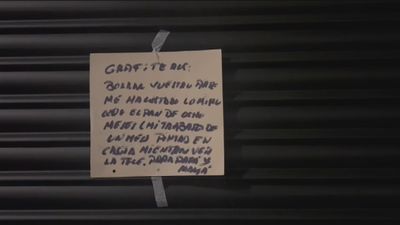 GRAFITEROS:
BORRAR VUESTRO ARTE
ME HA COSTADO LO MISMO
EL PAN DE OCHO
MESES (MI TRABAJO DE
UN MES PINTAD EN
CASA MIENTRAS VEN
LA TELE, PAPÁ Y
MAMÁ